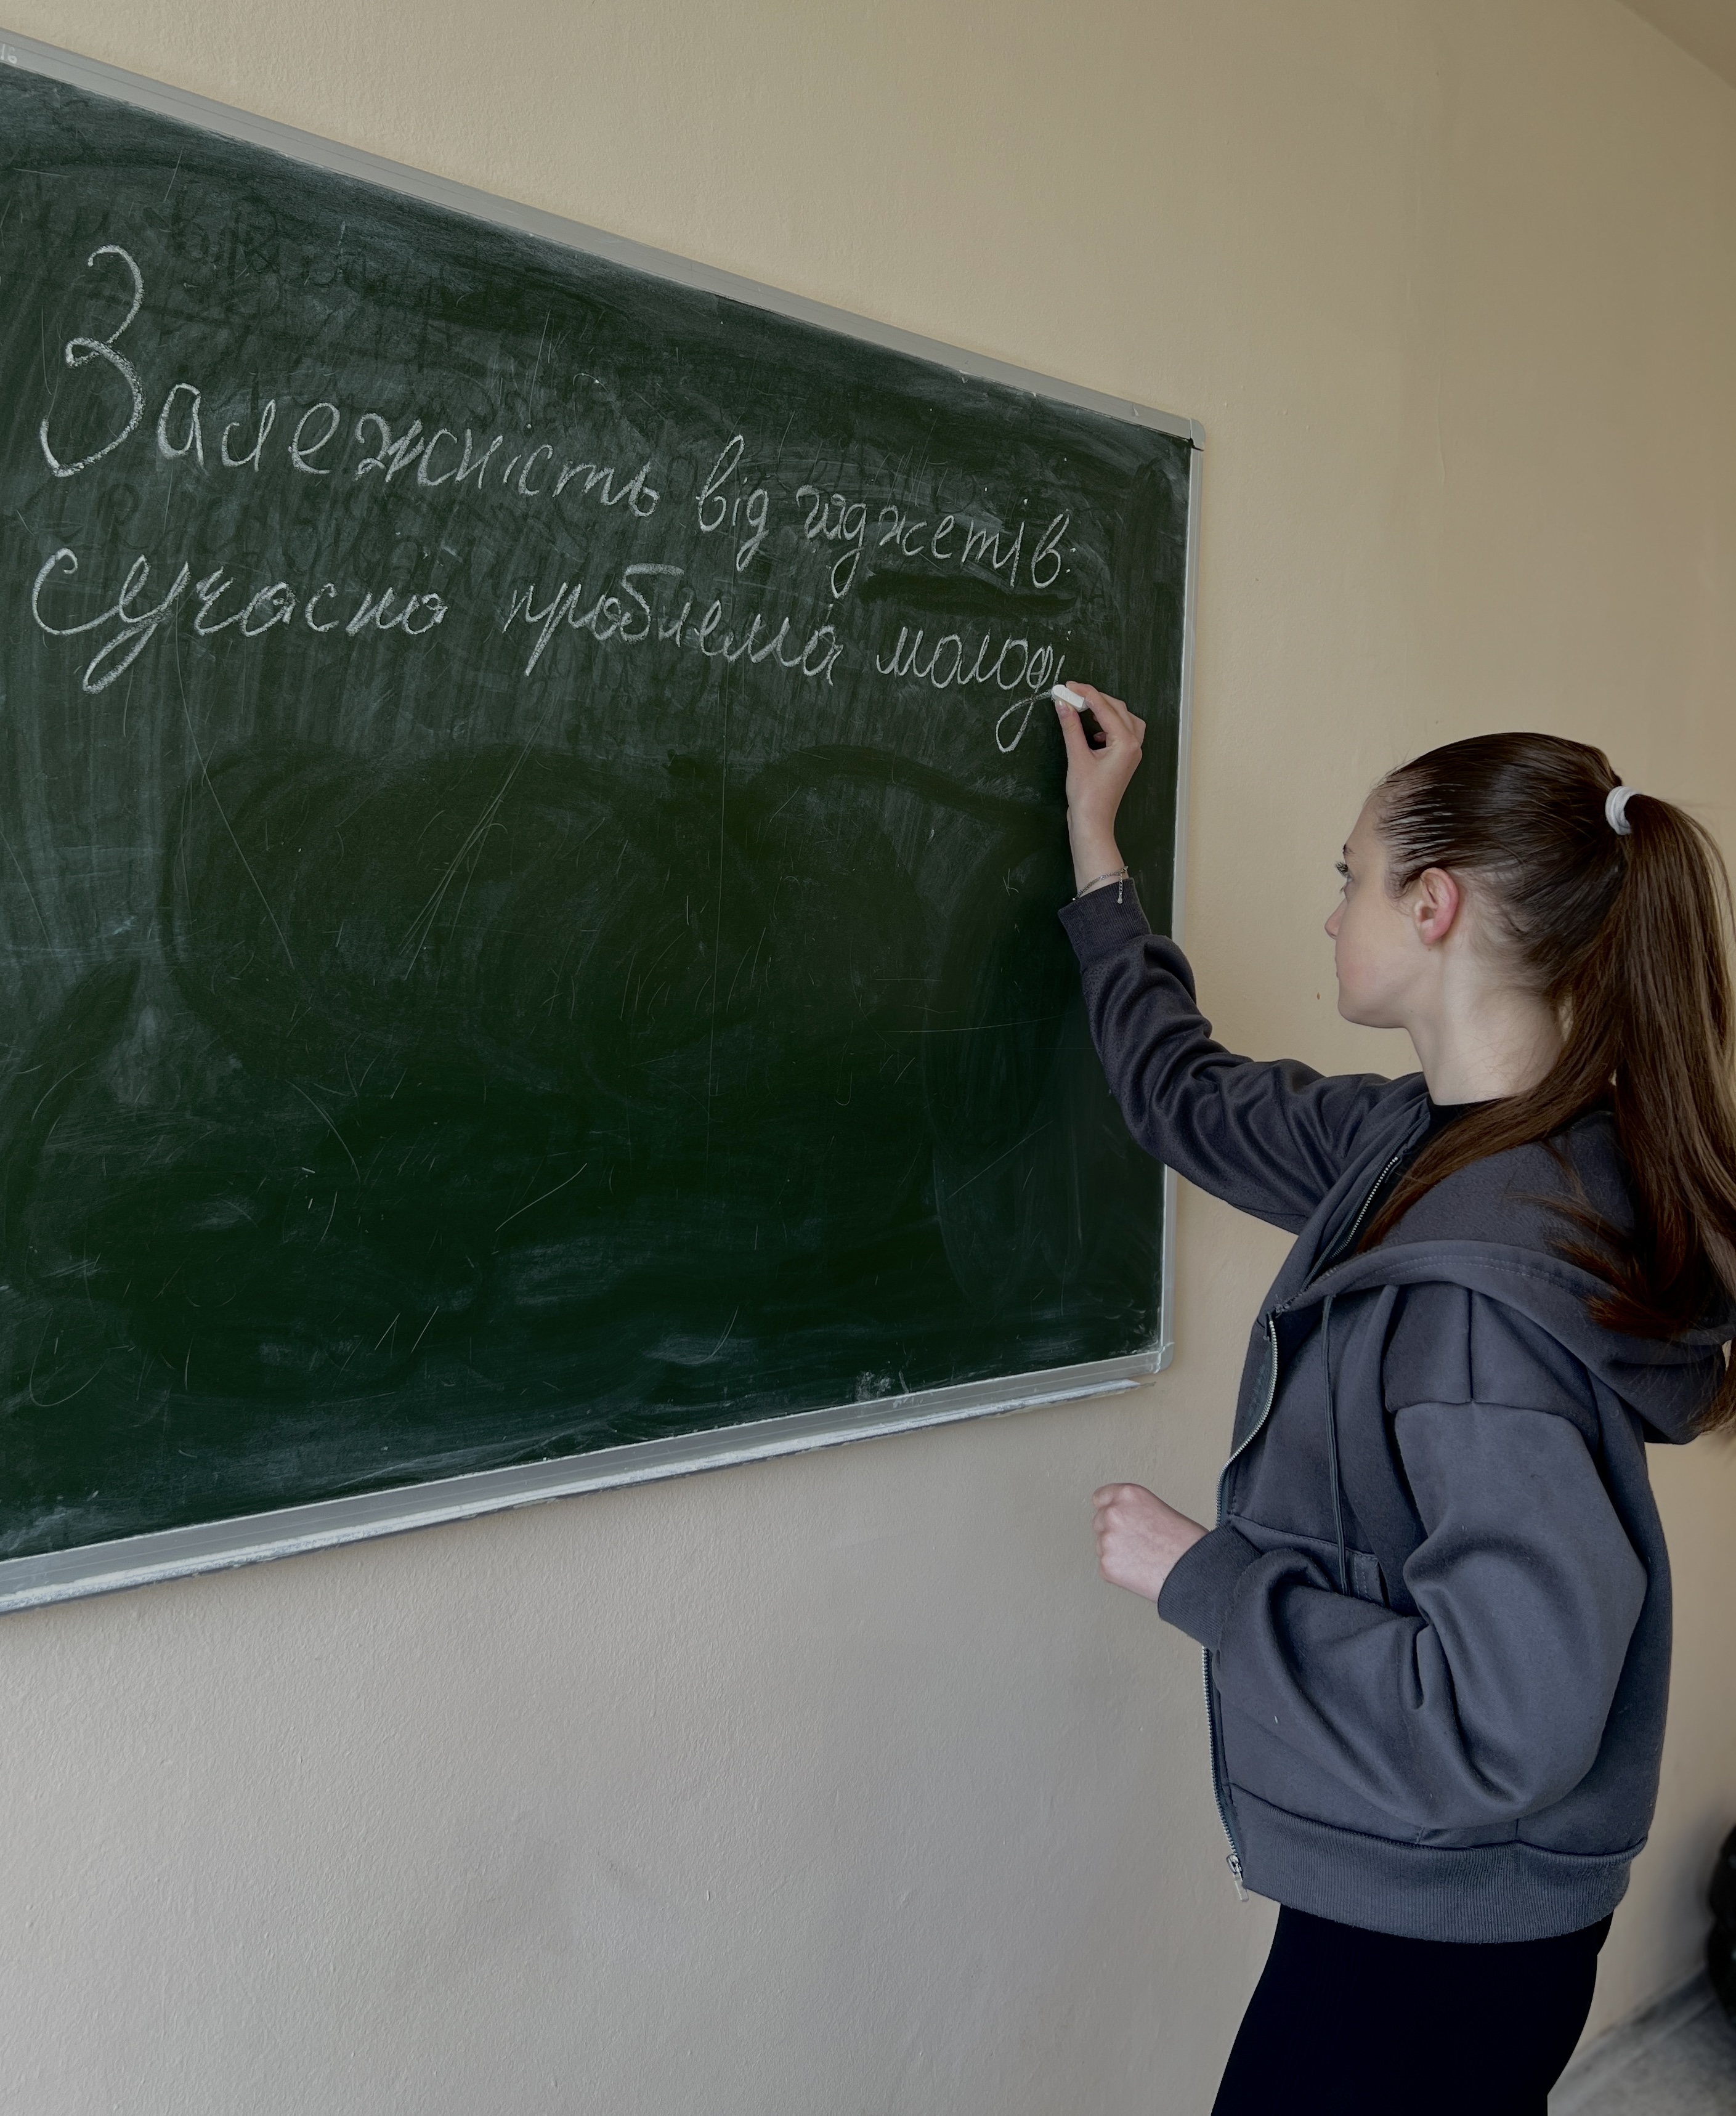 Залежність від гаджетів:
сучасна проблема молоді